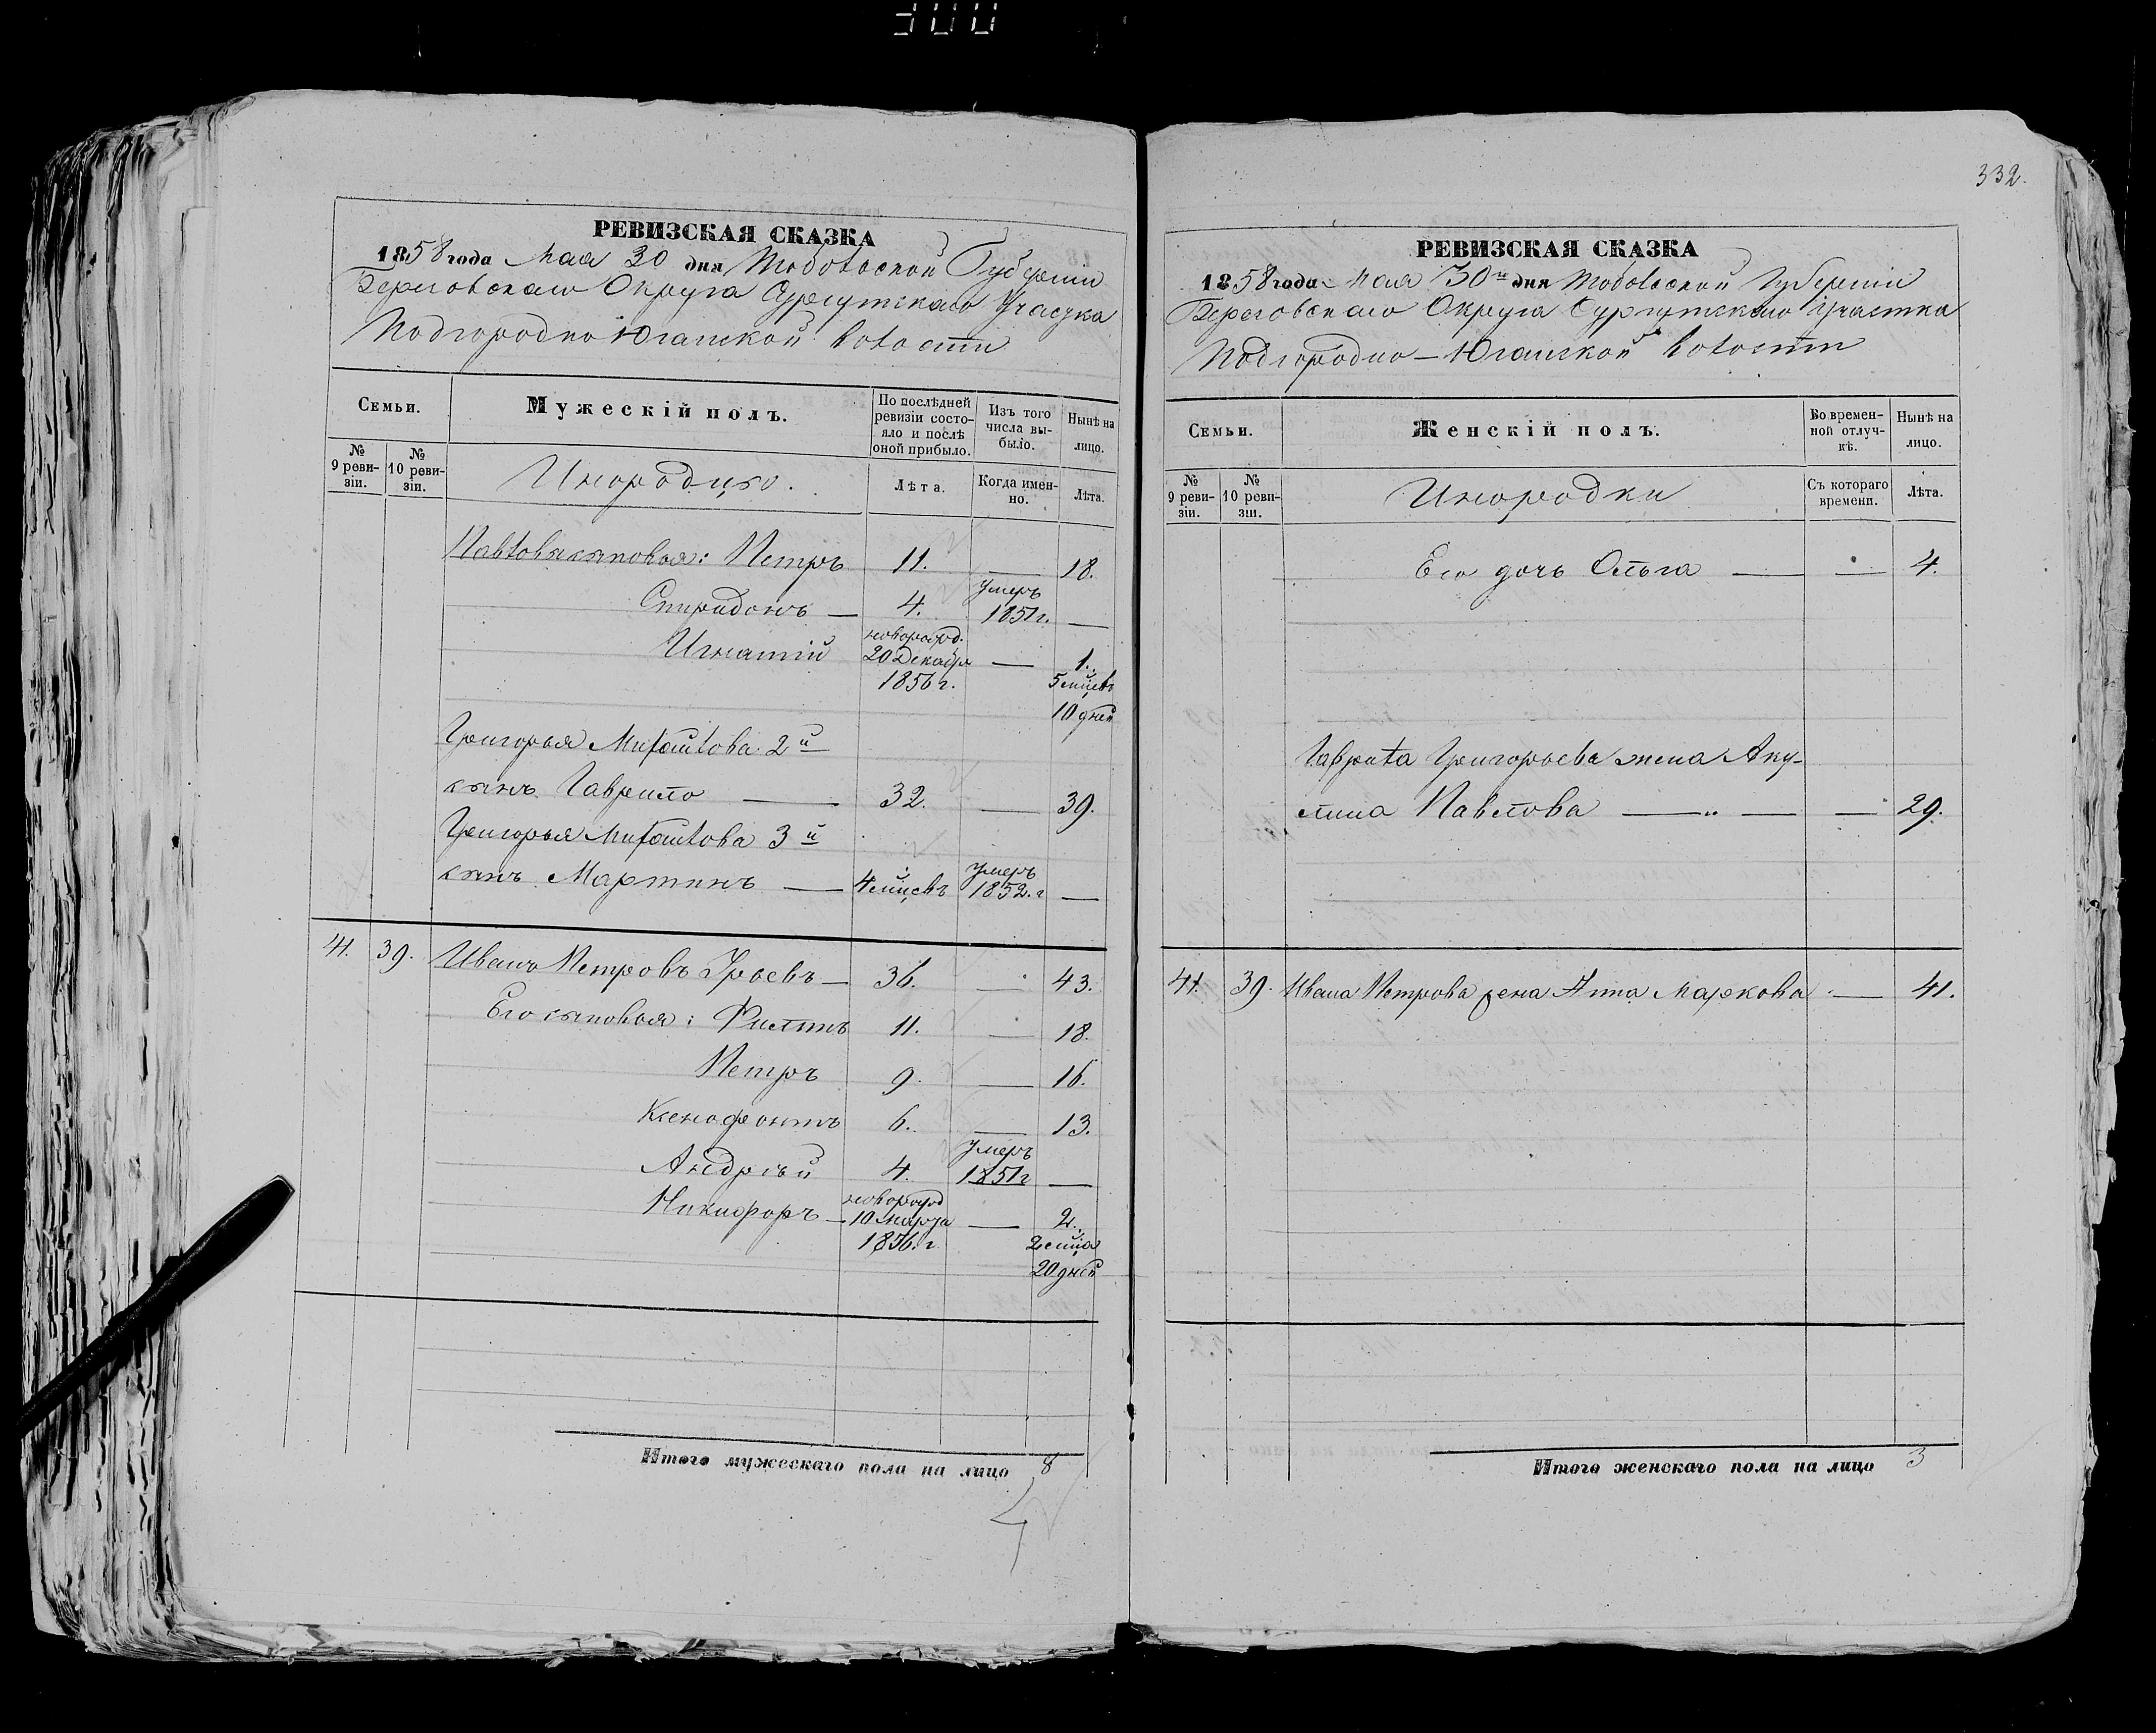 300
РЕВИЗСКАЯ СКАЗКА
1858 года Мая 30 дня Тобольской Губернии
Березовскаго Округа Сургутскаго Участка
Подгородно Юганской волости
Семьи.
Мужескій полъ.
По послѣдней ревизіи состояло и послѣ оной прибыло.
Изъ того числа выбыло.
Нынѣ на лицо.
№ 9 ревизіи.
№ 10 ревизіи.
Инородцы.
Лѣта.
Когда именно.
Лѣта.
Павловы сыновья: Петръ 11. — 18.
Спиридонъ — 4. Умеръ 1851 г. —
Игнатій новорожд. 20 Декабря 1856 г. — 1. 5 мѣцевъ 10 дней
Григорья Михайлова 2й
сынъ Гаврило — 32. — 39.
Григорья Михайлова 3й
сынъ Мартинъ — 4 мѣцевъ Умеръ 1852. г —
41. 39. Иванъ Петровъ — 36. — 43.
Его сыновья: Филипъ 11. — 18.
Петръ 9. — 16.
Ксенофонтъ 6. — 13.
Андрей 4. Умеръ 1851 г —
Никифоръ — новорожд 10 Марта 1856. г — 2. 2 мѣца 20 дней
Итого мужескаго пола на лицо 8
332.
РЕВИЗСКАЯ СКАЗКА
1858 года Мая 30го дня Тобольской Губерніи
Березовскаго Округа Сургутскаго Участка
Подгородно-Юганской волости
Семьи.
Женскій полъ.
Во временной отлучкѣ.
Нынѣ на лицо.
№ 9 ревизіи.
№ 10 ревизіи.
Инородки
Съ котораго времени.
Лѣта.
Его дочь Ольга — — 4.
Гаврила Григорьева жена Аку-
лина Павлова — „ — — 29.
41. 39. Ивана Петрова жена Анна Маркова — 41.
Итого женскаго пола на лицо 3